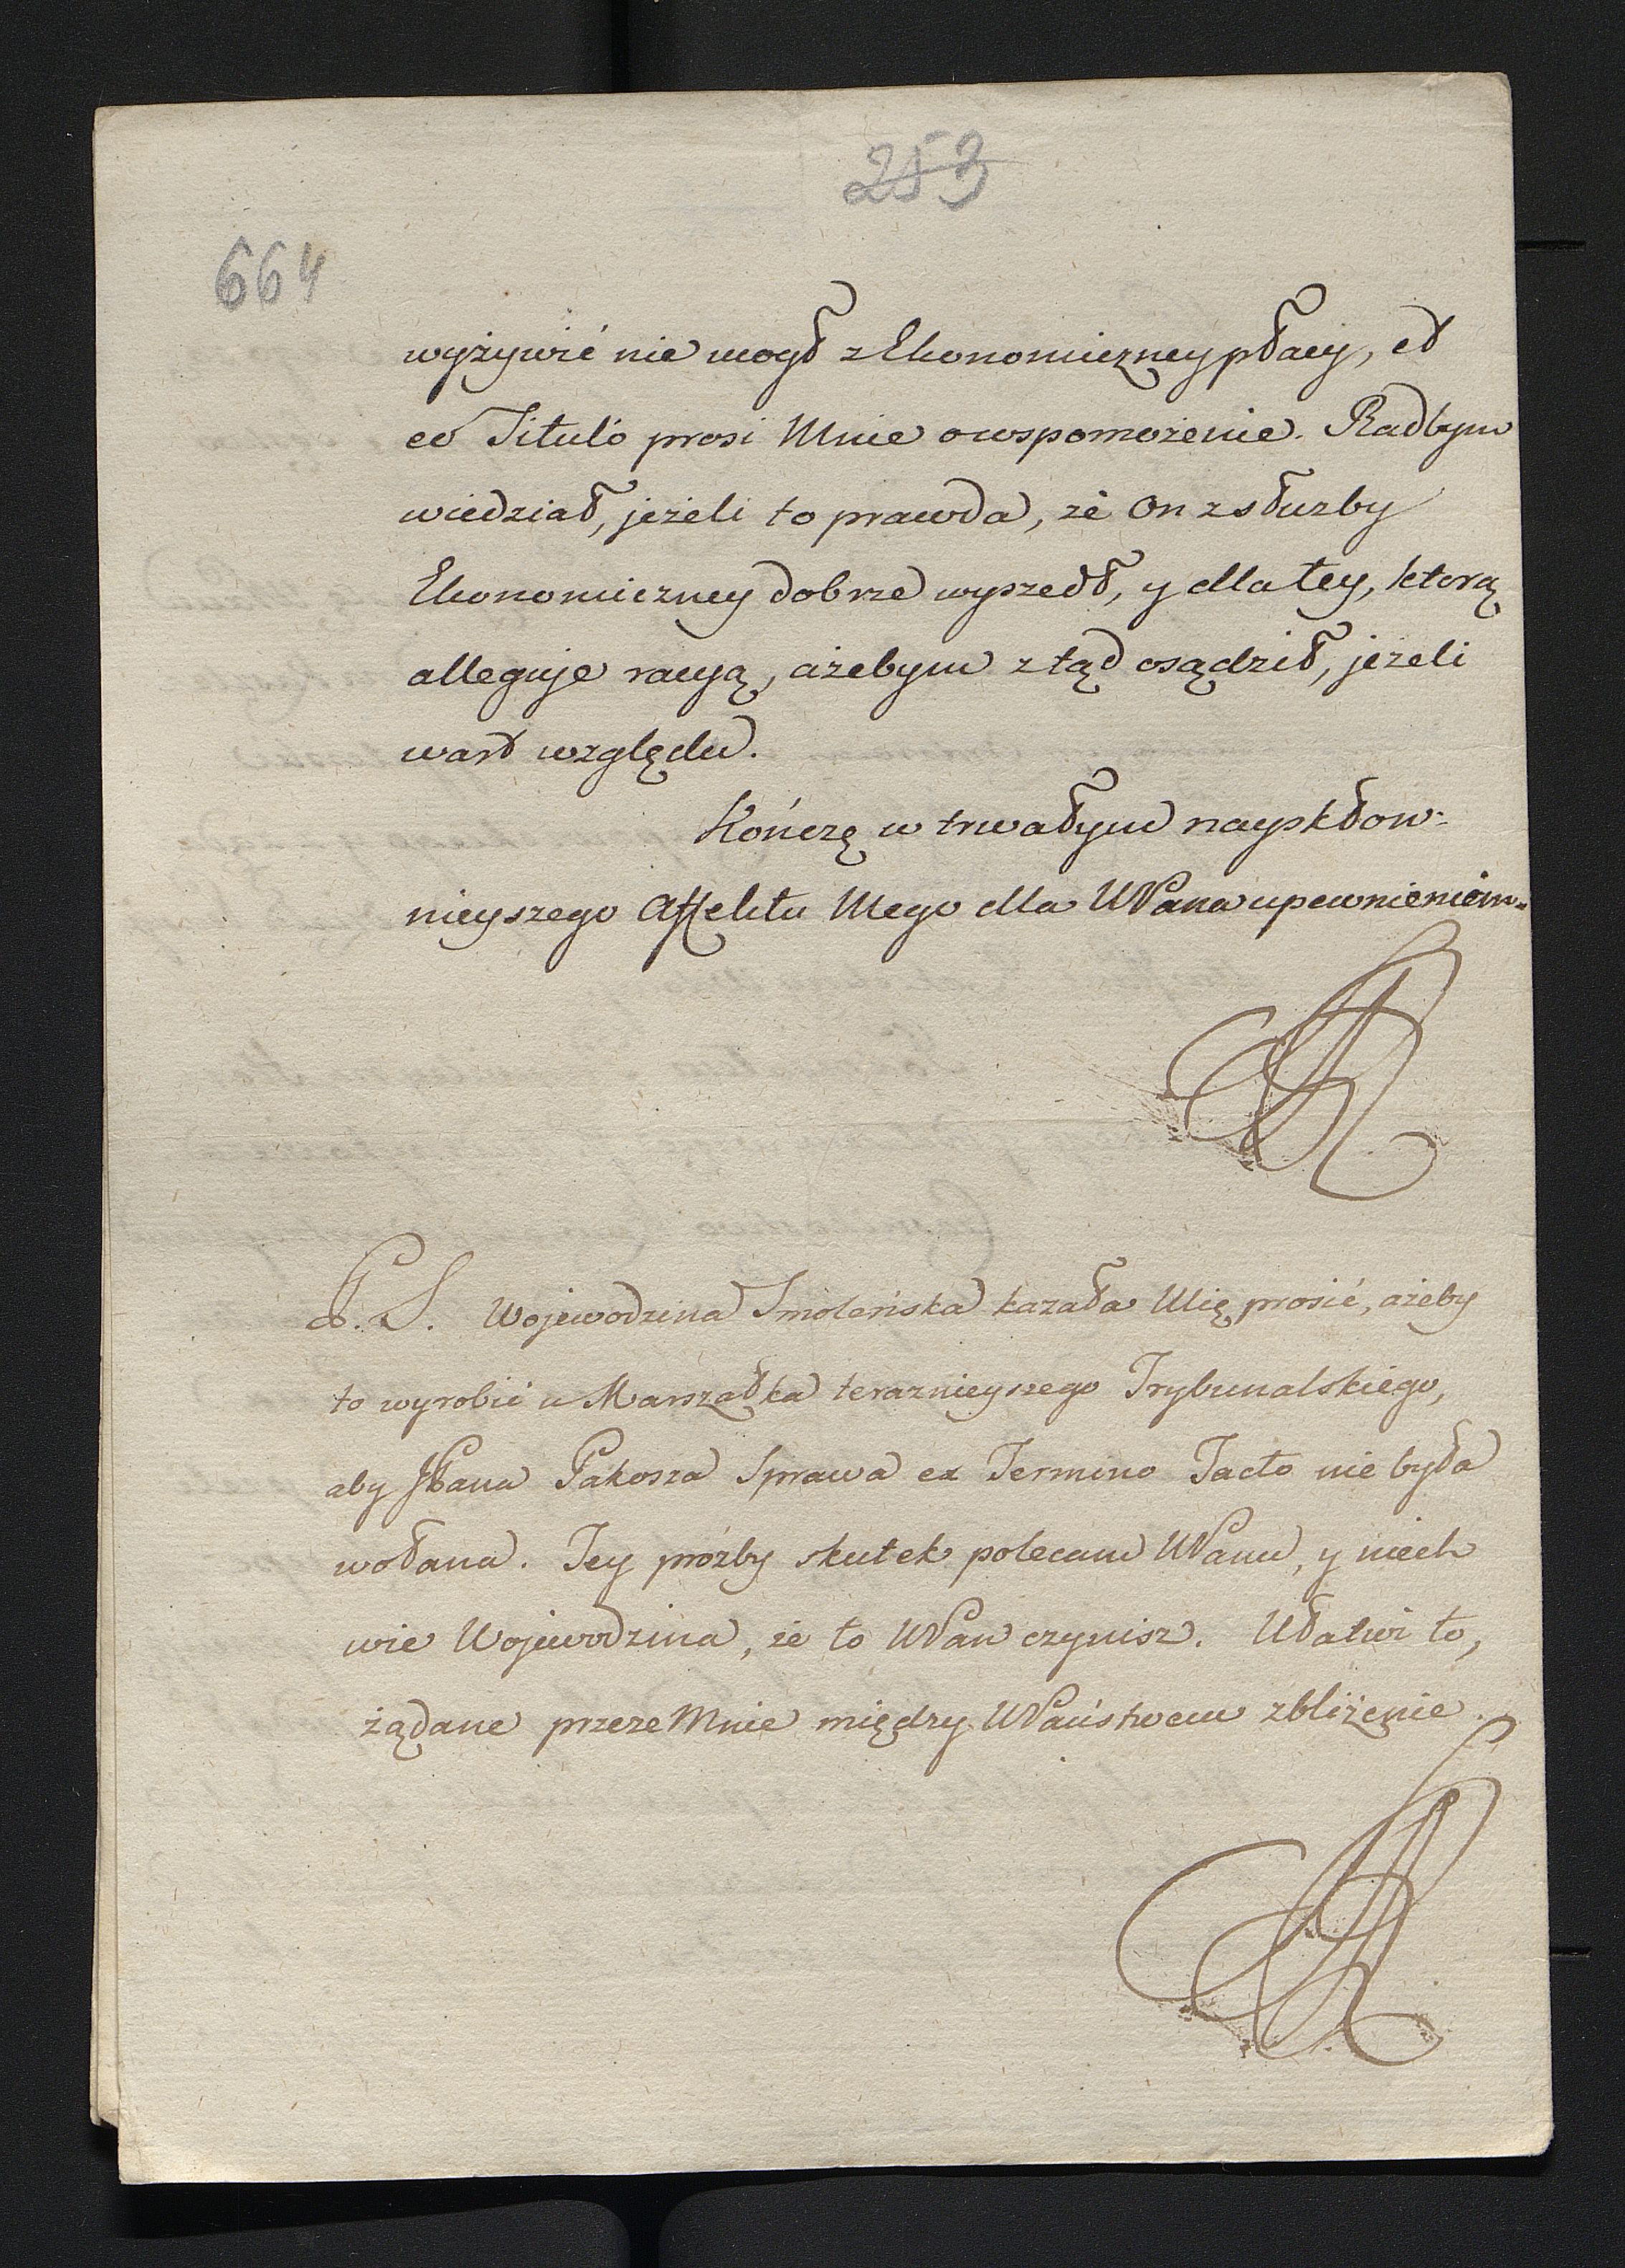 253
664
wyżywić nie mogł z Ekonomiczney płacy, et
eo Titulo prosi Mnie o wspomożenie. Radbym
wiedział, jeżeli to prawda, że On z służby
Ekonomiczney dobrze wyszedł, y dla tey, ktorą
alleguje racyą, ażebym ztąd osądził, jeżeli
wart względu.
Kończę w trwałym nayskłon-
nieyszego Affektu Mego dla WPana upewnieniem.
P. S. Wojewodzina Smoleńska kazała Mię prosić, ażeby
to wyrobić u Marszałka teraznieyszego Trybunalskiego,
aby JPana Pakosza Sprawa ex Termino Tacto nie była
wołana. Jey proźby skutek polecam WPanu, y niech
wie Wojewodzina, że to WPan czynisz. Ułatwi to,
żądane przeze Mnie między WPaństwem zbliżenie.